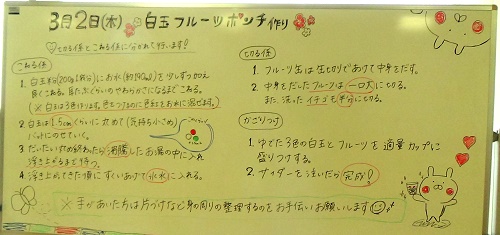 3月2日(木) 白玉フルーツポンチ作り
切る係とこねる係に分かれて行います!
こねる係
1. 白玉粉(200g1袋分)にお水(約190ml)を少しずつ加え
良くこねる。耳たぶくらいのやわらかさになるまでこねる。
(※白玉は3色作ります。色をつけるのに色粉をお水に混ぜます。)
2. 白玉は1.5cmくらいに丸めて(気持ち小さめ)
バットにのせていく。
3. だいたい丸め終わったら沸騰したお湯の中に入れ
浮き上がるまで待つ。
4. 浮き上がってきた順にすくいあげて氷水に入れる。
切る係
1. フルーツ缶は缶切りであけて中身をだす。
2. 中身をだしたフルーツは一口大に切る。
また、洗ったイチゴも半分に切る。
かざりつけ
1. ゆでた3色の白玉とフルーツを適量カップに
盛りつけする。
2. サイダーを注いだら完成!
※手があいた方は片づけなど身の周りの整理するのをお手伝いお願いします